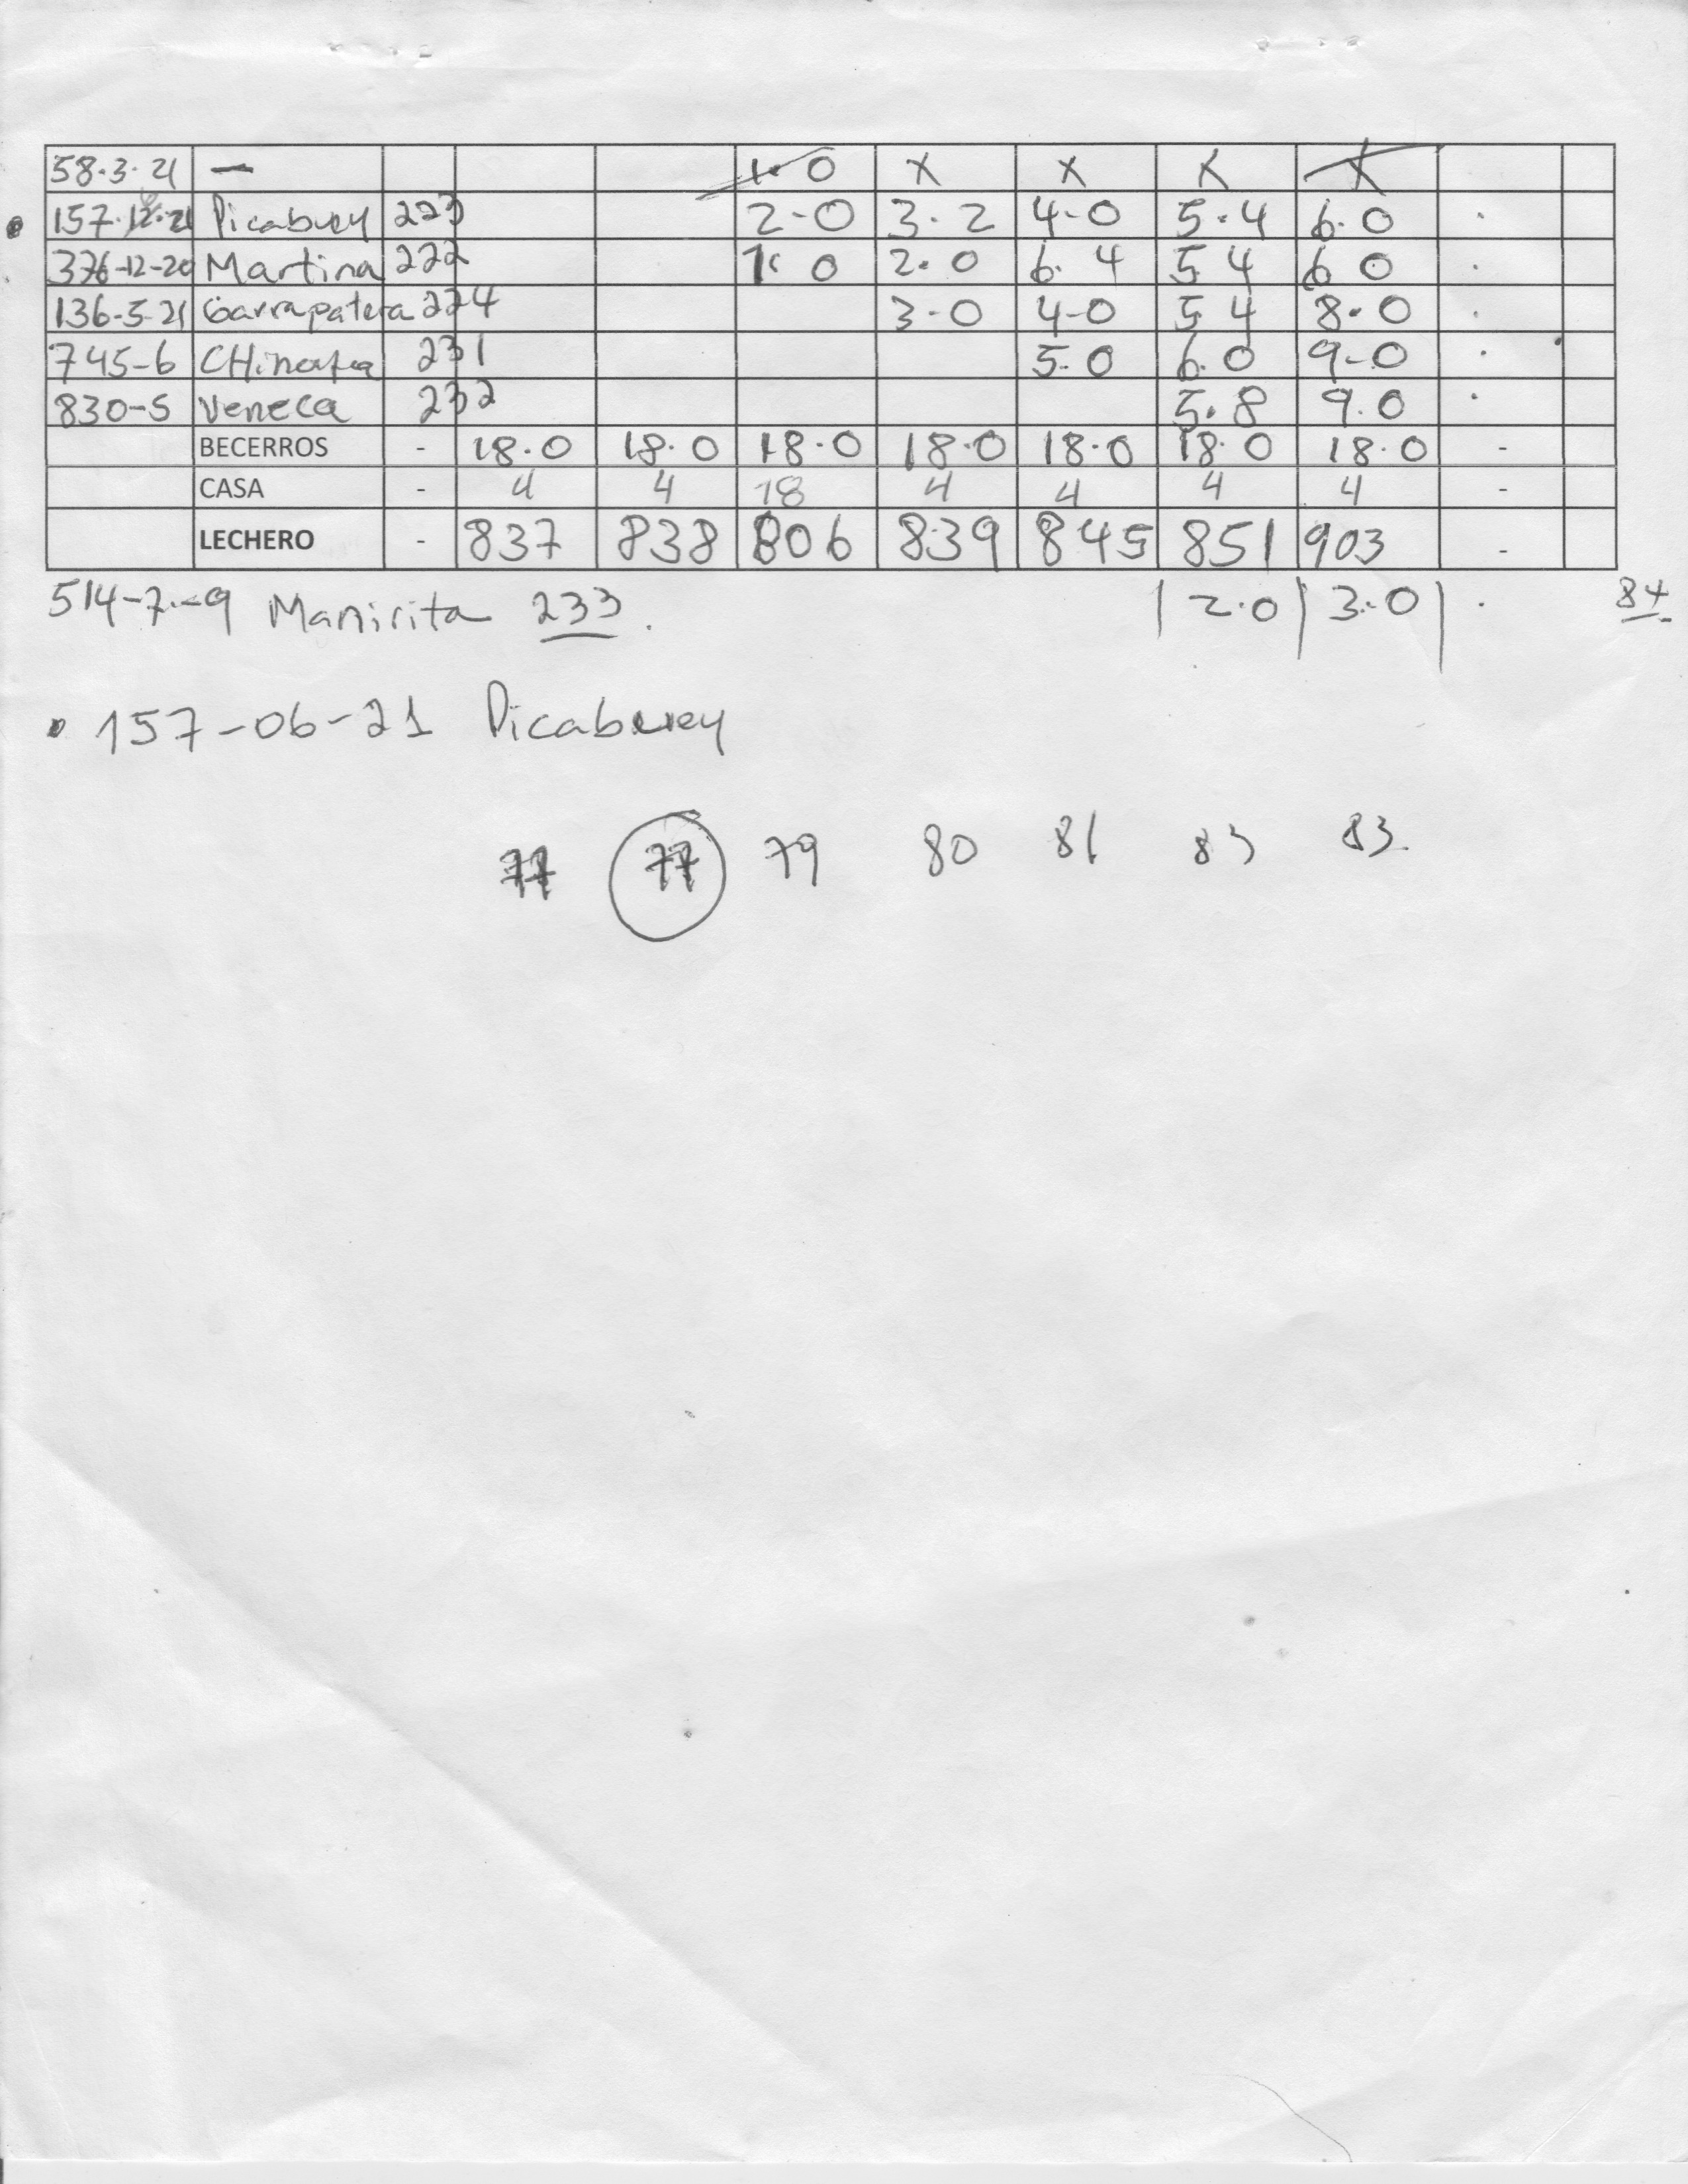 58.3.21 — 1.0 X X X X
157.12.21 Picabuey 223 2-0 3.2 4-0 5.4 6.0
376-12-20 Martina 222 1.0 2.0 6.4 5 4 6 0
136-5-21 Garrapatera 224 3-0 4-0 5 4 8.0
745-6 231 5.0 6.0 9-0
830-5 Veneca 232 5.8 9.0
BECERROS - 18.0 18.0 18.0 18.0 18.0 18.0 18.0 -
CASA - 4 4 18 4 4 4 4 -
LECHERO - 837 838 806 839 845 851 903 -
514-7-9 Manirita 233. | 2.0 | 3.0 | . 84
• 157-06-21 Picabuey
77 77 79 80 81 83 83.